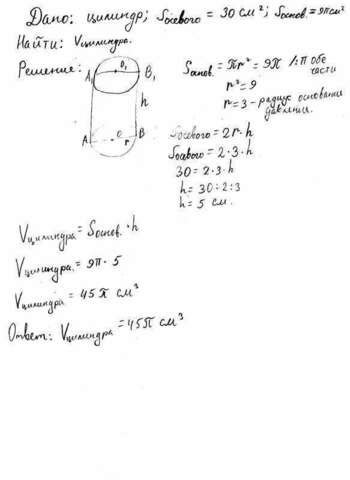 Дано: цилиндр; Sосевого = 30 см²; Sоснов. = 9π см²
Найти: Vцилиндра.
Решение:
O₁
A₁
B₁
h
A
O
r
B
Sоснов. = πr² = 9π /:π обе
части
r² = 9
r = 3 - радиус основания
цилиндра.
Sосевого = 2r · h
Sосевого = 2 · 3 · h
30 = 2 · 3 · h
h = 30 : 2 : 3
h = 5 см.
Vцилиндра = Sоснов. · h
Vцилиндра = 9π · 5
Vцилиндра = 45π см³
Ответ: Vцилиндра = 45π см³